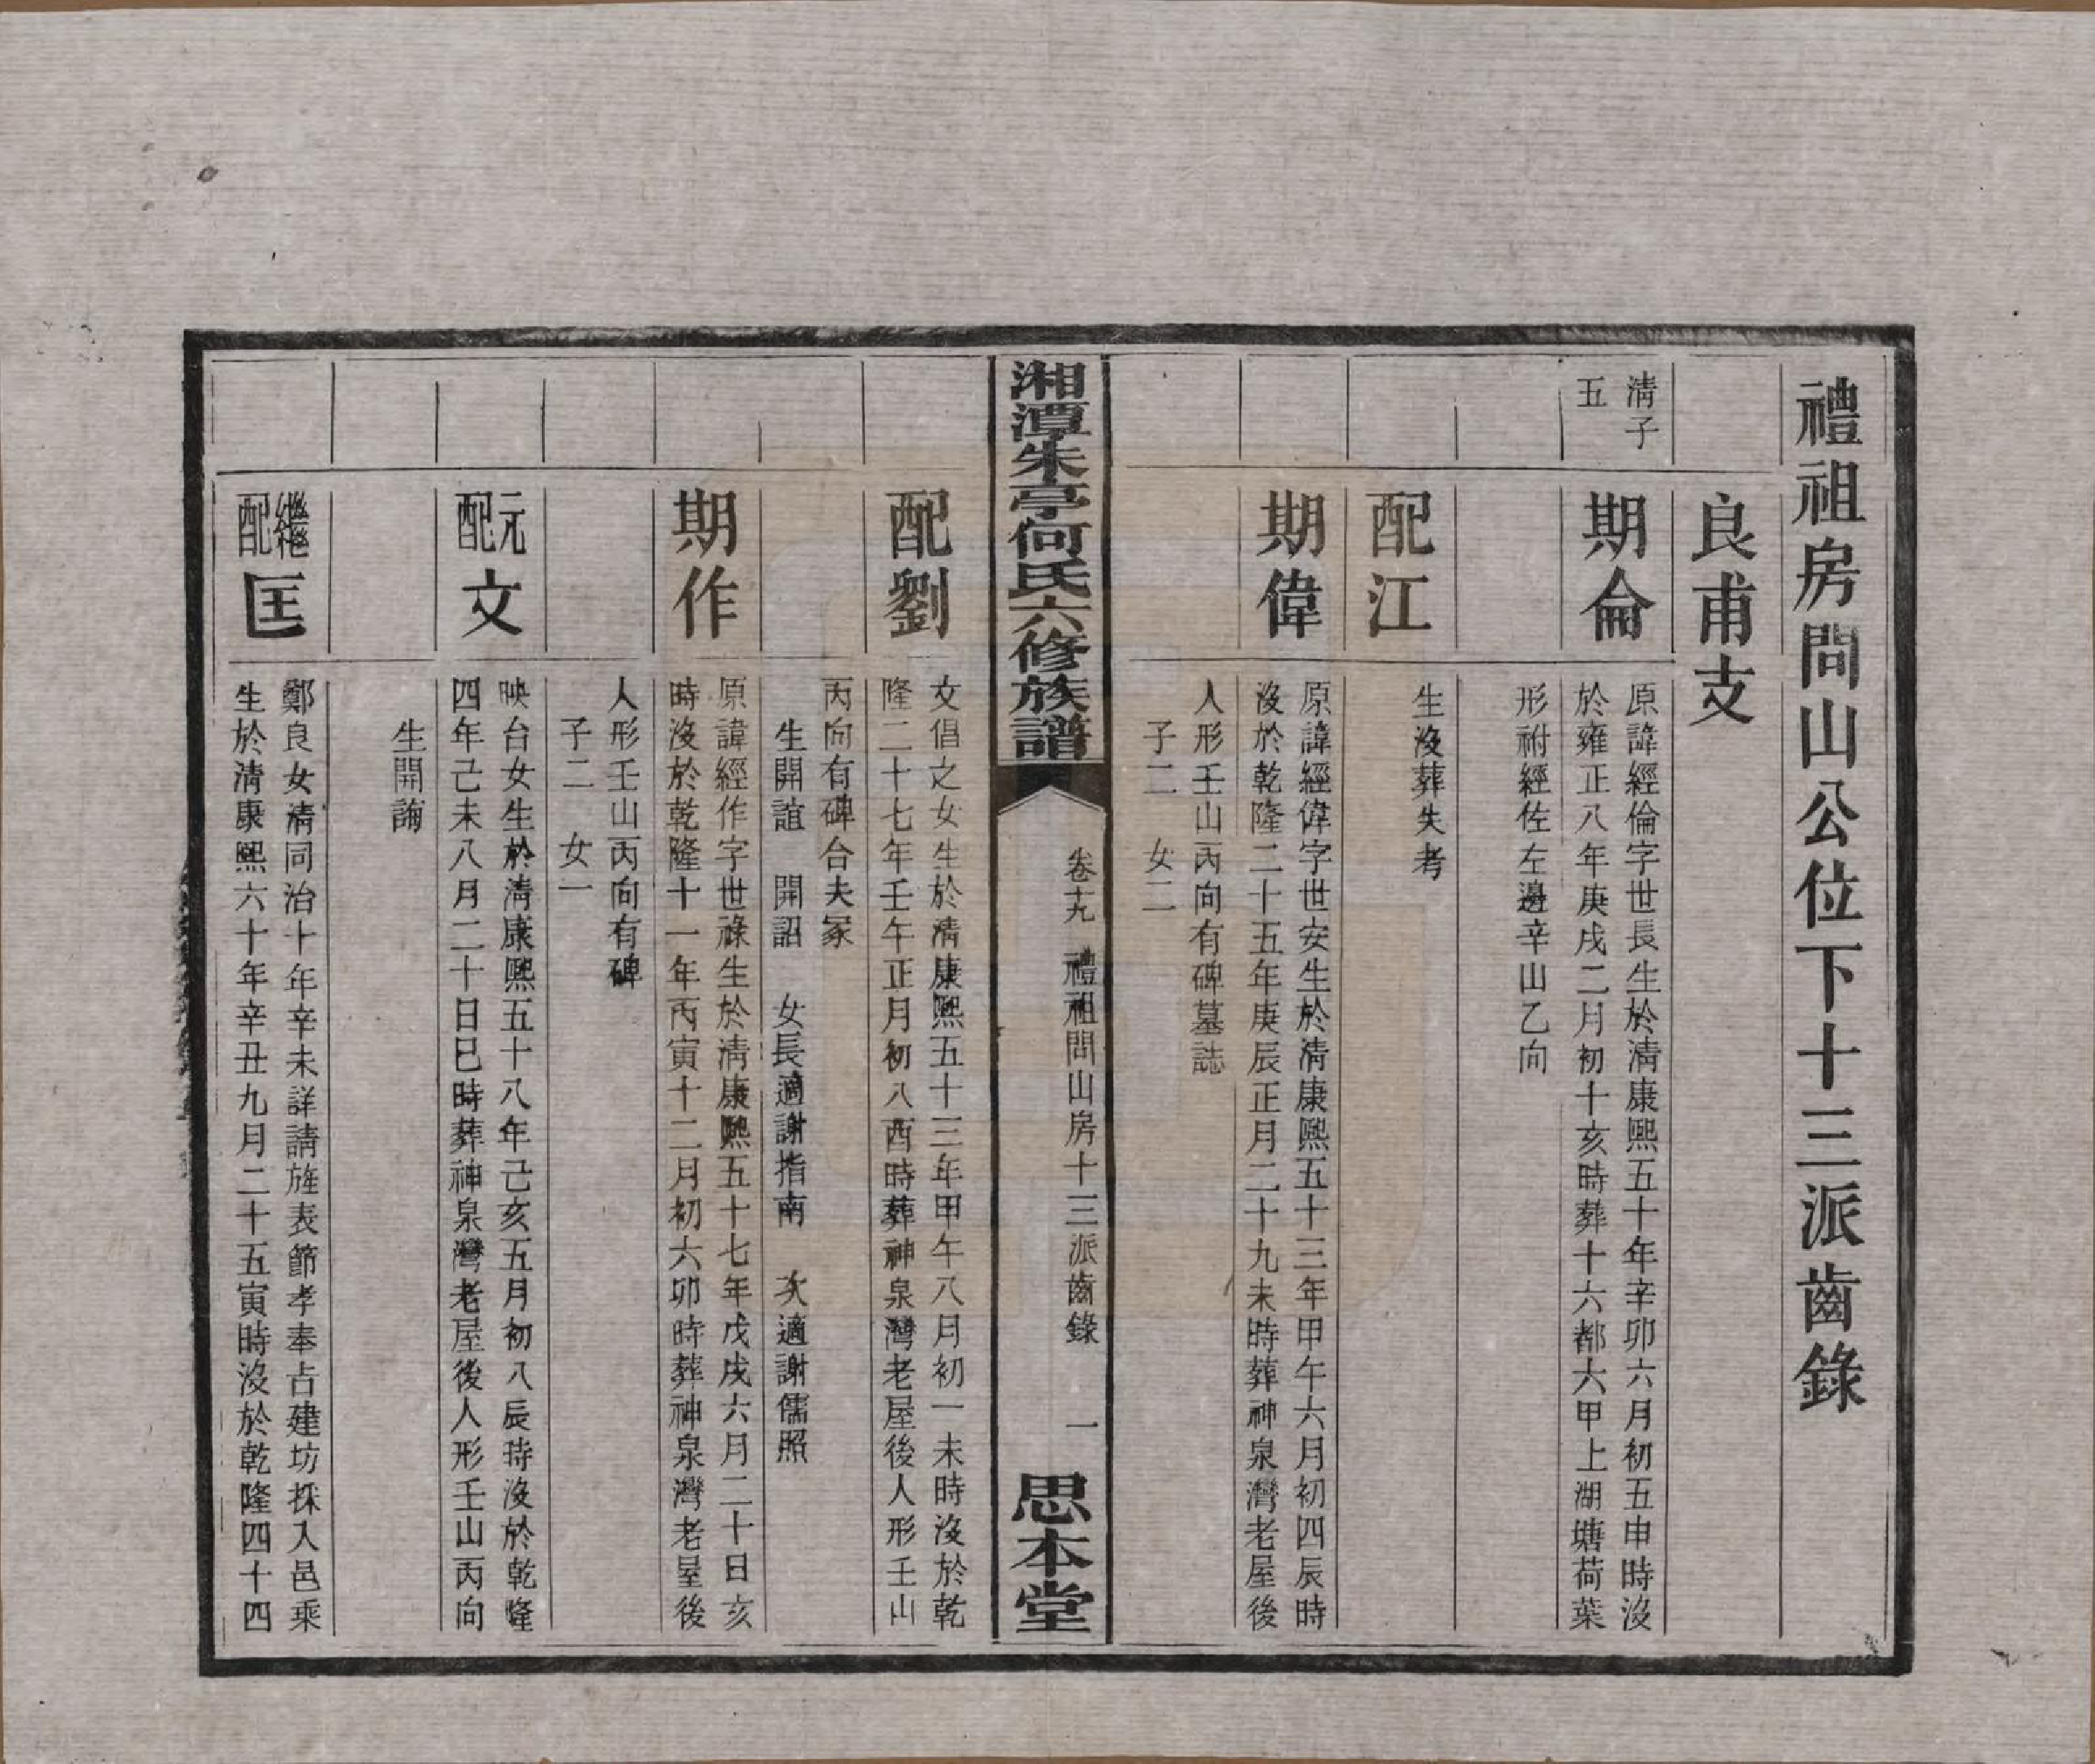 禮祖房問山公位下十三派齒錄
良甫支
清子
五
期倫
原諱經倫字世長生於清康熙五十年辛卯六月初五申時沒
於雍正八年庚戌二月初十亥時葬十六都六甲上湖塘荷葉
形祔經佐左邊辛山乙向
配江
生沒葬失考
期偉
原諱經偉字世安生於清康熙五十三年甲午六月初四辰時
沒於乾隆二十五年庚辰正月二十九未時葬神泉灣老屋後
人形壬山丙向有碑墓誌
子二 女二
湘潭朱亭何氏六修族譜
卷十九 禮祖問山房十三派齒錄 一
思本堂
配劉
文倡之女生於清康熙五十三年甲午八月初一未時沒於乾
隆二十七年壬午正月初八酉時葬神泉灣老屋後人形壬山
丙向有碑台夫冢
生開誼 開詔 女長適謝指南 次適謝儒照
期作
原諱經作字世祿生於清康熙五十七年戊戌六月二十日亥
時沒於乾隆十一年丙寅十二月初六卯時葬神泉灣老屋後
人形壬山丙向有碑
子二 女一
元配文
映台女生於清康熙五十八年己亥五月初八辰時沒於乾隆
四年己未八月二十日巳時葬神泉灣老屋後人形壬山丙向
生開論
繼配匡
鄭良女清同治十年辛未詳請旌表節孝奉占建坊採入邑乘
生於清康熙六十年辛丑九月二十五寅時沒於乾隆四十四